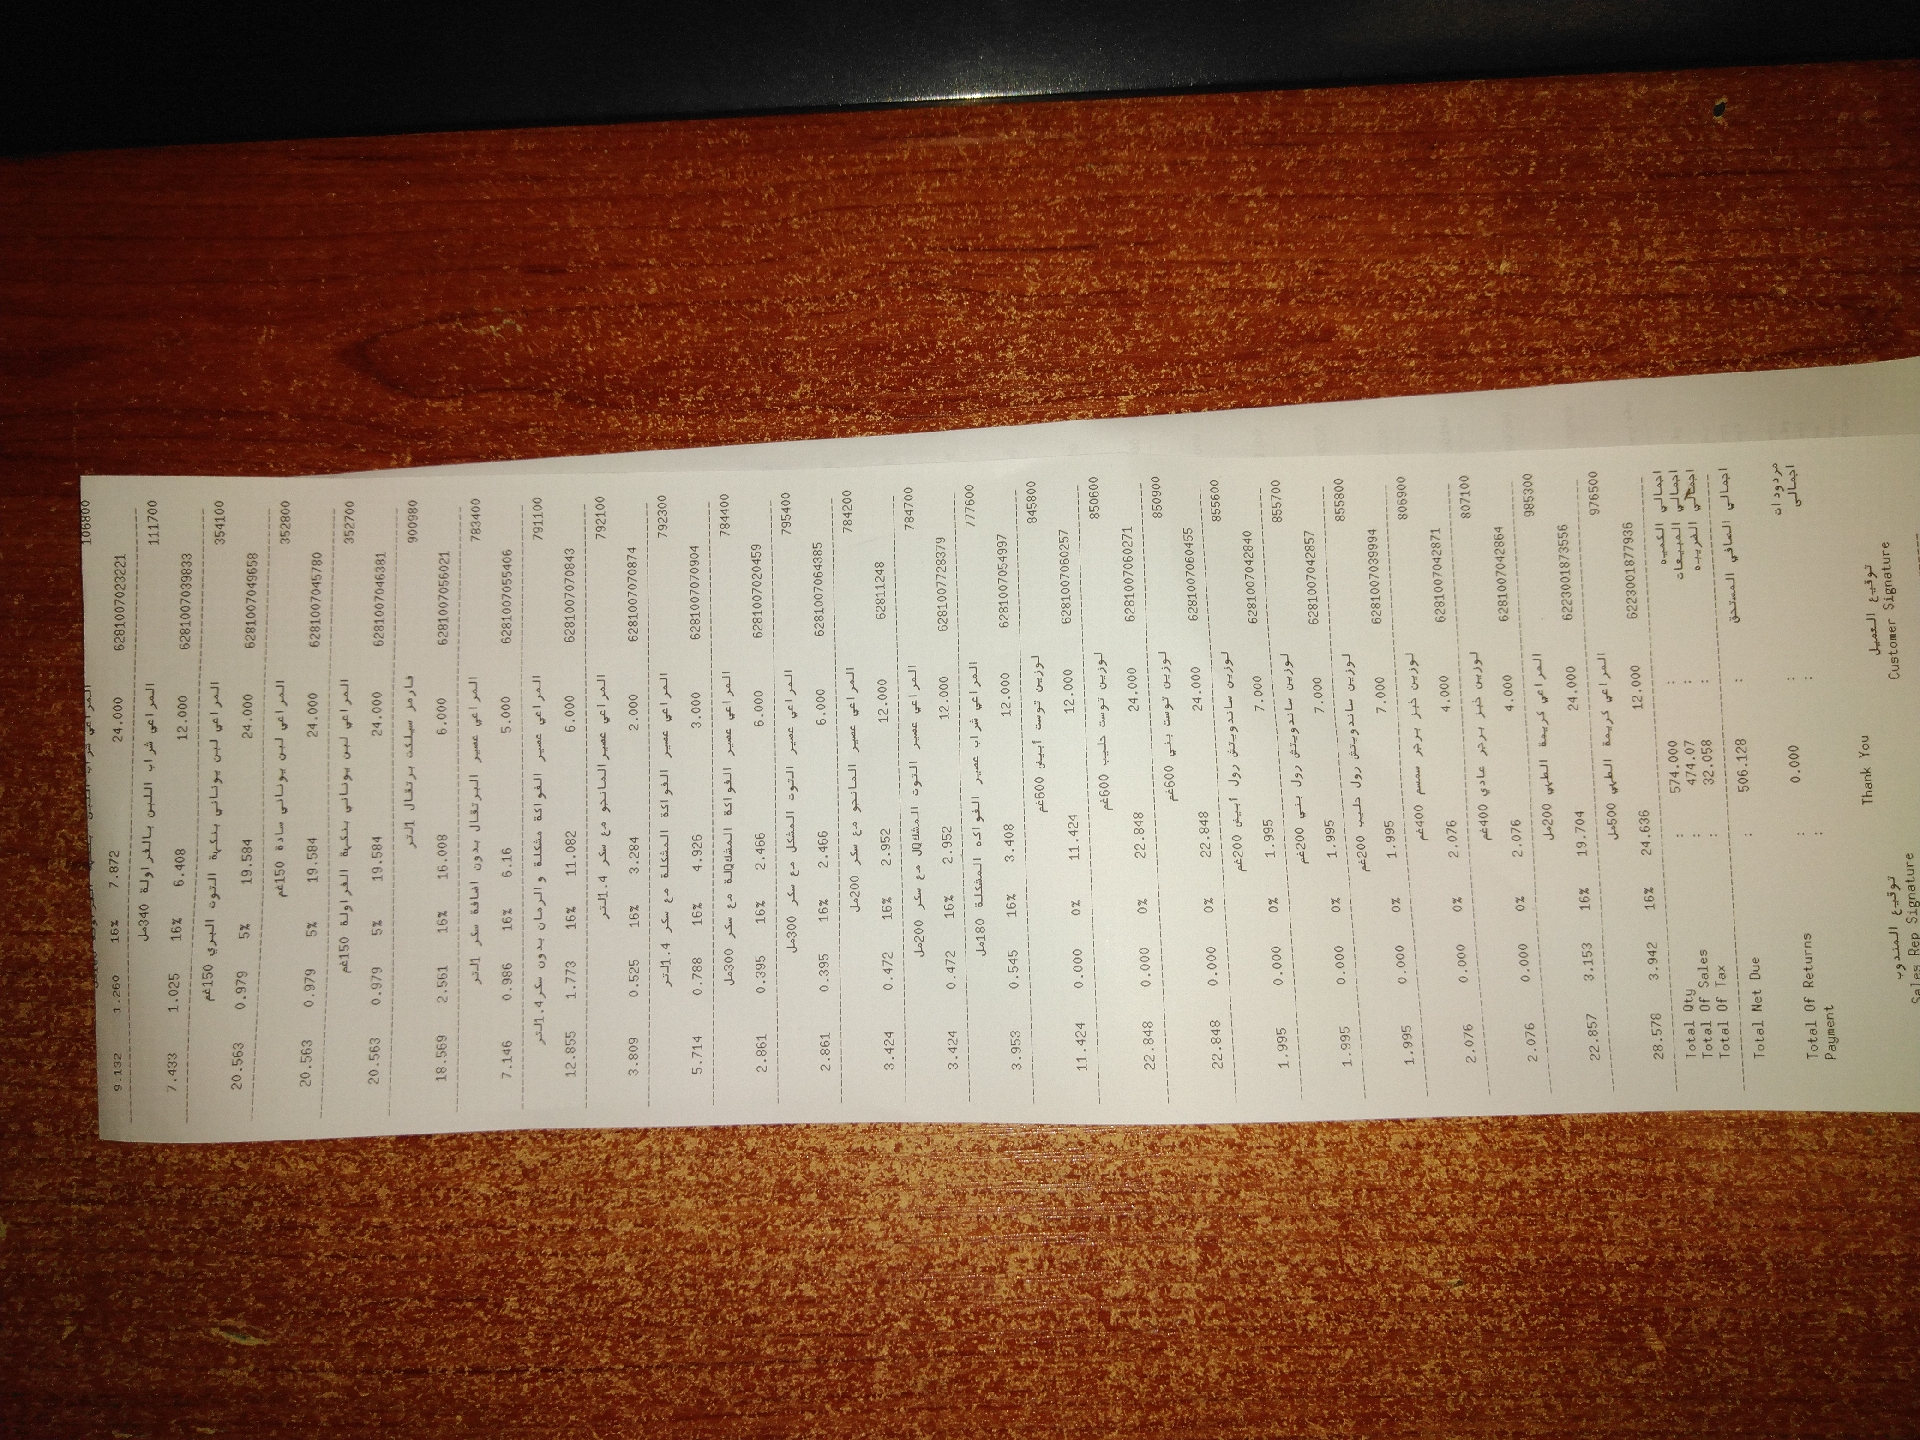 106800
9.132 1.260 16% 7.872 24.000 6281007023221
111700 المراعي شراب اللبن بالفراولة 340مل
7.433 1.025 16% 6.408 12.000 6281007039833
354100 المراعي لبن يوناني بنكهة التوت البري 150غم
20.563 0.979 5% 19.584 24.000 6281007049658
352800 المراعي لبن يوناني سادة 150غم
20.563 0.979 5% 19.584 24.000 6281007045780
352700 المراعي لبن يوناني بنكهة الفراولة 150غم
20.563 0.979 5% 19.584 24.000 6281007046381
900980 فارمز سيلكت برتقال 1لتر
18.569 2.561 16% 16.008 6.000 6281007056021
783400 المراعي عصير البرتقال بدون اضافة سكر 1لتر
7.146 0.986 16% 6.16 5.000 6281007055406
791100 المراعي عصير الفواكة مشكلة والرمان بدون سكر1.4لتر
12.855 1.773 16% 11.082 6.000 6281007070843
792100 المراعي عصير المانجو مع سكر 1.4لتر
3.809 0.525 16% 3.284 2.000 6281007070874
792300 المراعي عصير الفواكة المشكلة مع سكر 1.4لتر
5.714 0.788 16% 4.926 3.000 6281007070904
784400 المراعي عصير الفواكة مع سكر 300مل
2.861 0.395 16% 2.466 6.000 6281007020459
795400 المراعي عصير التوت المشكل مع سكر 300مل
2.861 0.395 16% 2.466 6.000 6281007064385
784200 المراعي عصير المانجو مع سكر 200مل
3.424 0.472 16% 2.952 12.000 62811248
784700 المراعي عصير التوت مع سكر 200مل
3.424 0.472 16% 2.952 12.000 6281007728379
777600 المراعي شراب عصير الفواكه المشكلة 180مل
3.953 0.545 16% 3.408 12.000 6281007054997
845800 لوزين توست أبيض 600غم
11.424 0.000 0% 11.424 12.000 6281007060257
850600 لوزين توست حليب 600غم
22.848 0.000 0% 22.848 24.000 6281007060271
850900 لوزين توست بني 600غم
22.848 0.000 0% 22.848 24.000 6281007060455
855600 لوزين ساندويتش رول أبيض 200غم
1.995 0.000 0% 1.995 7.000 6281007042840
855700 لوزين ساندويتش رول بني 200غم
1.995 0.000 0% 1.995 7.000 6281007042857
855800 لوزين ساندويتش رول حليب 200غم
1.995 0.000 0% 1.995 7.000 6281007039994
806900 لوزين خبز برجر سمسم 400غم
2.076 0.000 0% 2.076 4.000 6281007042871
807100 لوزين خبز برجر عادي 400غم
2.076 0.000 0% 2.076 4.000 6281007042864
985300 المراعي كريمة الطهي 200مل
22.857 3.153 16% 19.704 24.000 6223001873556
976500 المراعي كريمة الطهي 500مل
28.578 3.942 16% 24.636 12.000 6223001877936
Total Qty : 574.000 : اجمالي الكميه
Total Of Sales : 474.07 : اجمالي المبيعات
Total Of Tax : 32.058 : اجمالي الضريبه
Total Net Due : 506.128 : اجمالي الصافي المستحق
Total Of Returns : 0.000 : مردودات
Payment : : اجمالى
توقيع المندوب توقيع العميل
Sales Rep Signature Thank You Customer Signature